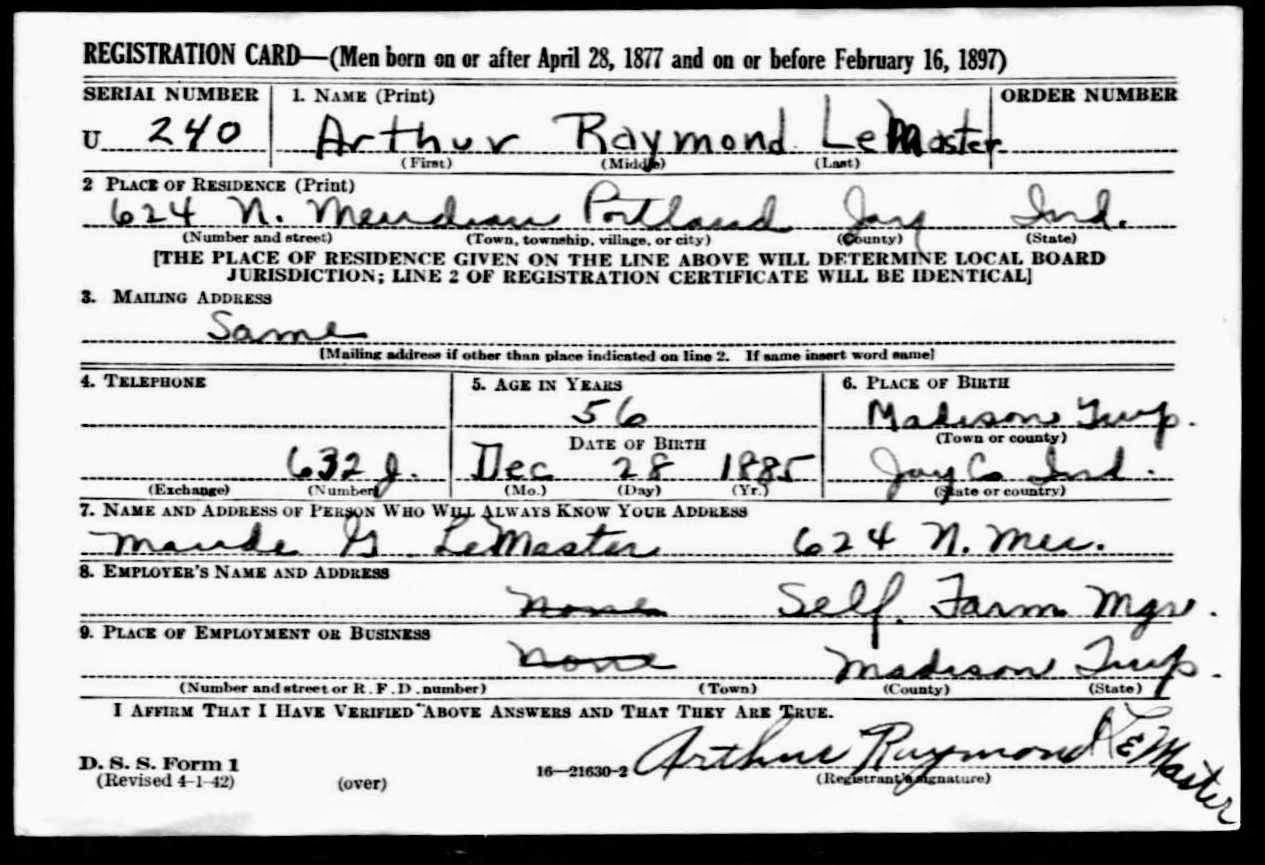 REGISTRATION CARD—(Men born on or after April 28, 1877 and on or before February 16, 1897)
SERIAL NUMBER 1. NAME (Print) ORDER NUMBER
U 240 Arthur Raymond LeMaster
(First) (Middle) (Last)
2 PLACE OF RESIDENCE (Print)
624 N. Meridian Portland Jay Ind.
(Number and street) (Town, township, village, or city) (County) (State)
[THE PLACE OF RESIDENCE GIVEN ON THE LINE ABOVE WILL DETERMINE LOCAL BOARD
JURISDICTION; LINE 2 OF REGISTRATION CERTIFICATE WILL BE IDENTICAL]
3. MAILING ADDRESS
Same
[Mailing address if other than place indicated on line 2. If same insert word same]
4. TELEPHONE 5. AGE IN YEARS 6. PLACE OF BIRTH
56 Madison Twp.
DATE OF BIRTH (Town or county)
632 J. Dec 28 1885 Jay Co Ind.
(Exchange) (Number) (Mo.) (Day) (Yr.) (State or country)
7. NAME AND ADDRESS OF PERSON WHO WILL ALWAYS KNOW YOUR ADDRESS
Maude G LeMaster 624 N. Mer.
8. EMPLOYER'S NAME AND ADDRESS
None Self. Farm Mgr.
9. PLACE OF EMPLOYMENT OR BUSINESS
None Madison Twp.
(Number and street or R. F. D. number) (Town) (County) (State)
I AFFIRM THAT I HAVE VERIFIED ABOVE ANSWERS AND THAT THEY ARE TRUE.
Arthur Raymond LeMaster
D. S. S. Form 1 16—21630-2 (Registrant's signature)
(Revised 4-1-42) (over)